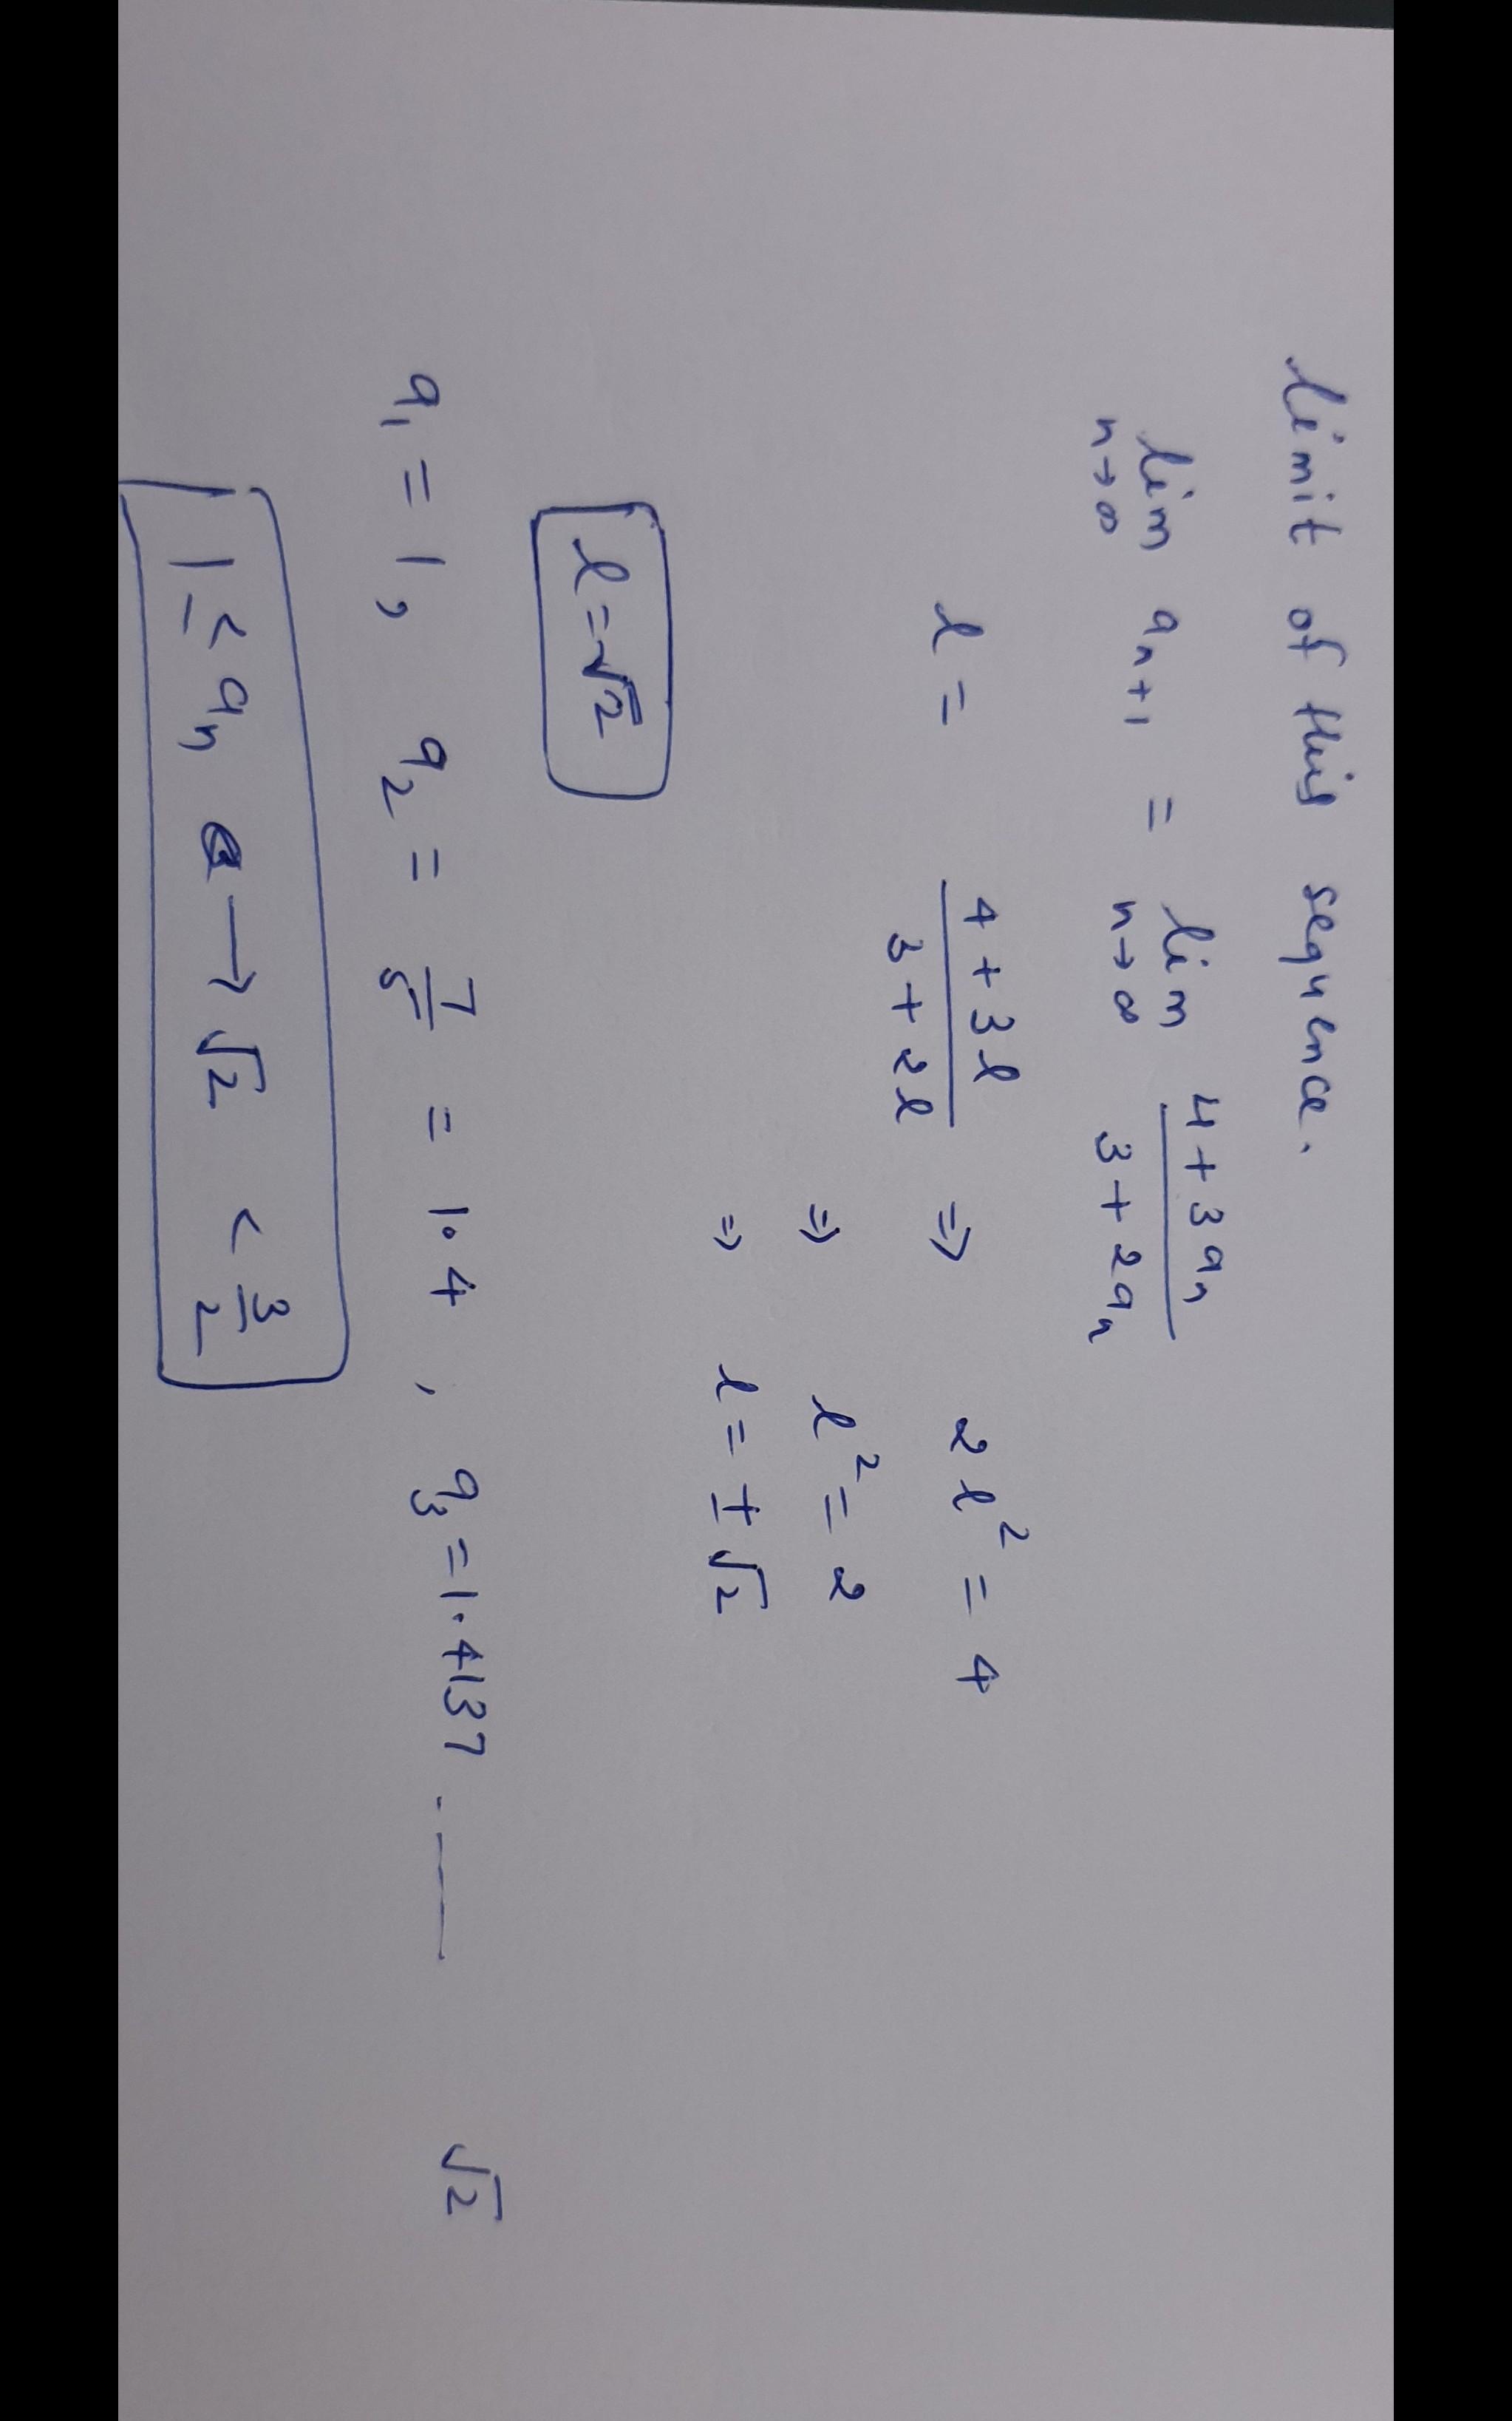 Limit of this sequence.
lim n→∞ a_{n+1} = lim n→∞ (4+3a_n)/(3+2a_n)
l = (4+3l)/(3+2l) ⇒ 2l² = 4
⇒ l² = 2
⇒ l = ±√2
l=√2
a₁ = 1, a₂ = 7/5 = 1.4, a₃ = 1.4137 ...... √2
1 ≤ a_n → √2 < 3/2